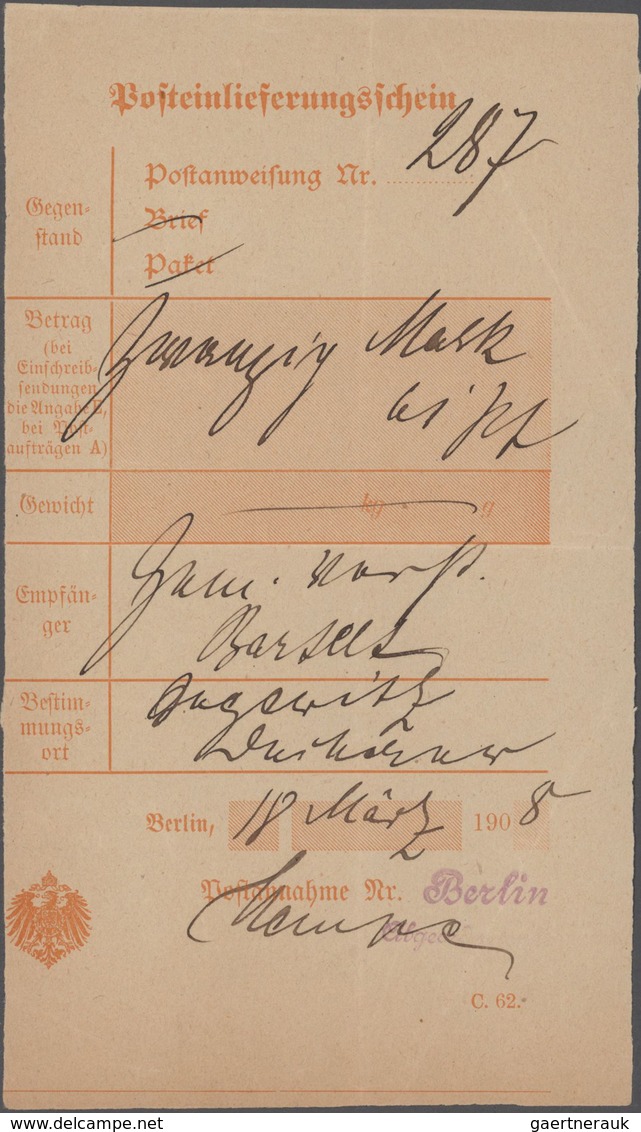 Posteinlieferungsschein
Gegen-
stand
Postanweisung Nr. 287
Brief
Paket
Betrag
(bei
Einschreib-
sendungen
die Angabe E,
bei Post-
aufträgen A)
Zwanzig Mark
61 Pf
Gewicht
kg g
Empfän-
ger
Gem. Vorst.
Bartelt
Bestim-
mungs-
ort
Berlin, 18 März 1908
Postannahme Nr. Berlin
C. 62.
gaertnerauk